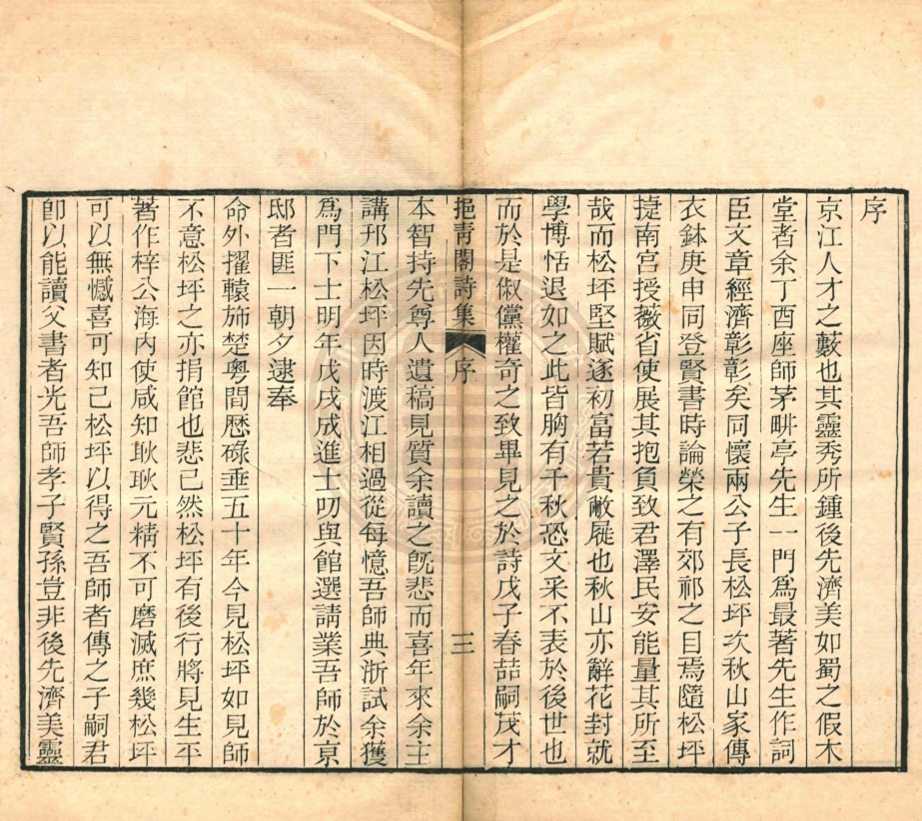 序
京江人才之藪也其靈秀所鍾後先濟美如蜀之假木
堂者余丁酉座師茅畊亭先生一門爲最著先生作詞
臣文章經濟彰彰矣同懷兩公子長松坪次秋山家傳
衣鉢庚申同登賢書時論榮之有郊祁之目焉隨松坪
捷南宮授薇省使展其抱負致君澤民安能量其所至
哉而松坪堅賦遂初富若貴敝屣也秋山亦辭花封就
學博恬退如之此皆胸有千秋恐文采不表於後世也
而於是俶儻權奇之致畢見之於詩戊子春喆嗣茂才
挹青閣詩集 序 三
本智持先尊人遺稿見質余讀之旣悲而喜年來余主
講邗江松坪因時渡江相過從每憶吾師典浙試余獲
爲門下士明年戊戌成進士叨與館選請業吾師於京
邸者匪一朝夕逮奉
命外擢轅斾楚粵間歷碌垂五十年今見松坪如見師
不意松坪之亦捐館也悲已然松坪有後行將見生平
著作梓公海內使咸知耿耿元精不可磨滅庶幾松坪
可以無憾喜可知已松坪以得之吾師者傳之子嗣君
卽以能讀父書者光吾師孝子賢孫豈非後先濟美靈